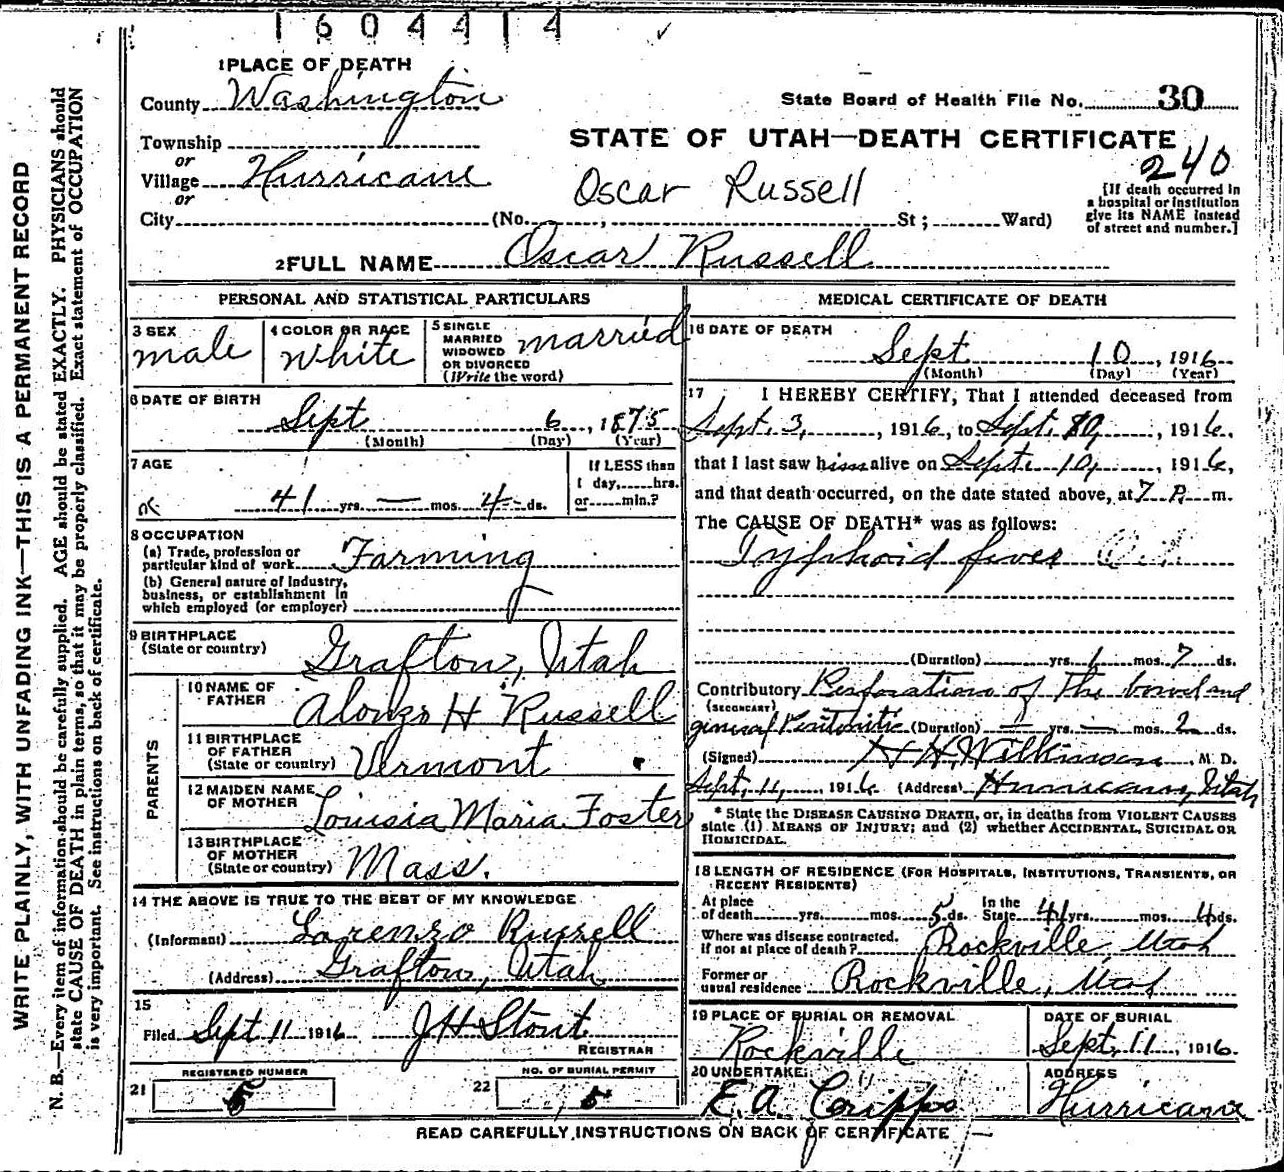 1604414
1 PLACE OF DEATH
County Washington
State Board of Health File No. 30
Township
or
Village Hurricane
or
City (No. , St; Ward)
STATE OF UTAH—DEATH CERTIFICATE
240
Oscar Russell
[If death occurred in
a hospital or institution
give its NAME instead
of street and number.]
2 FULL NAME Oscar Russell
PERSONAL AND STATISTICAL PARTICULARS
3 SEX
male
4 COLOR OR RACE
White
5 SINGLE
MARRIED
WIDOWED
OR DIVORCED
(Write the word)
married
6 DATE OF BIRTH
Sept 6, 1875
(Month) (Day) (Year)
7 AGE
41 yrs. — mos. 4 ds.
If LESS than
1 day, hrs.
or min.?
8 OCCUPATION
(a) Trade, profession or
particular kind of work Farming
(b) General nature of Industry,
business, or establishment in
which employed (or employer)
9 BIRTHPLACE
(State or country) Grafton, Utah
PARENTS
10 NAME OF
FATHER Alonzo H Russell
11 BIRTHPLACE
OF FATHER
(State or country) Vermont
12 MAIDEN NAME
OF MOTHER Louisia Maria Foster
13 BIRTHPLACE
OF MOTHER
(State or country) Mass.
14 THE ABOVE IS TRUE TO THE BEST OF MY KNOWLEDGE
(Informant) Lorenzo Russell
(Address) Grafton, Utah
15
Filed Sept 11 1916 JH Stout
REGISTRAR
21 REGISTERED NUMBER
5
22 NO. OF BURIAL PERMIT
5
MEDICAL CERTIFICATE OF DEATH
16 DATE OF DEATH
Sept 10, 1916
(Month) (Day) (Year)
17 I HEREBY CERTIFY, That I attended deceased from
Sept. 3, 1916, to Sept. 10, 1916,
that I last saw him alive on Sept. 10, 1916,
and that death occurred, on the date stated above, at 7 P. m.
The CAUSE OF DEATH* was as follows:
Typhoid fever
(Duration) yrs. 1 mos. 7 ds.
Contributory Perforation of the bowel and
(SECONDARY)
general Peritonitis (Duration) — yrs. — mos. 2 ds.
(Signed) H H. Wilkinson, M. D.
Sept. 11, 1916 (Address) Hurricane, Utah
* State the DISEASE CAUSING DEATH, or, in deaths from VIOLENT CAUSES
state (1) MEANS OF INJURY; and (2) whether ACCIDENTAL, SUICIDAL OR
HOMICIDAL.
18 LENGTH OF RESIDENCE (FOR HOSPITALS, INSTITUTIONS, TRANSIENTS, OR
RECENT RESIDENTS)
At place
of death yrs. mos. 5 ds. In the
State 41 yrs. mos. 4 ds.
Where was disease contracted,
if not at place of death? Rockville, Utah
Former or
usual residence Rockville, Utah
19 PLACE OF BURIAL OR REMOVAL
Rockville
DATE OF BURIAL
Sept. 11, 1916
20 UNDERTAKER
E. A Cripps
ADDRESS
Hurricane
READ CAREFULLY INSTRUCTIONS ON BACK OF CERTIFICATE
WRITE PLAINLY, WITH UNFADING INK—THIS IS A PERMANENT RECORD
N. B.—Every item of information should be carefully supplied. AGE should be stated EXACTLY. PHYSICIANS should
state CAUSE OF DEATH in plain terms, so that it may be properly classified. Exact statement of OCCUPATION
is very important. See instructions on back of certificate.